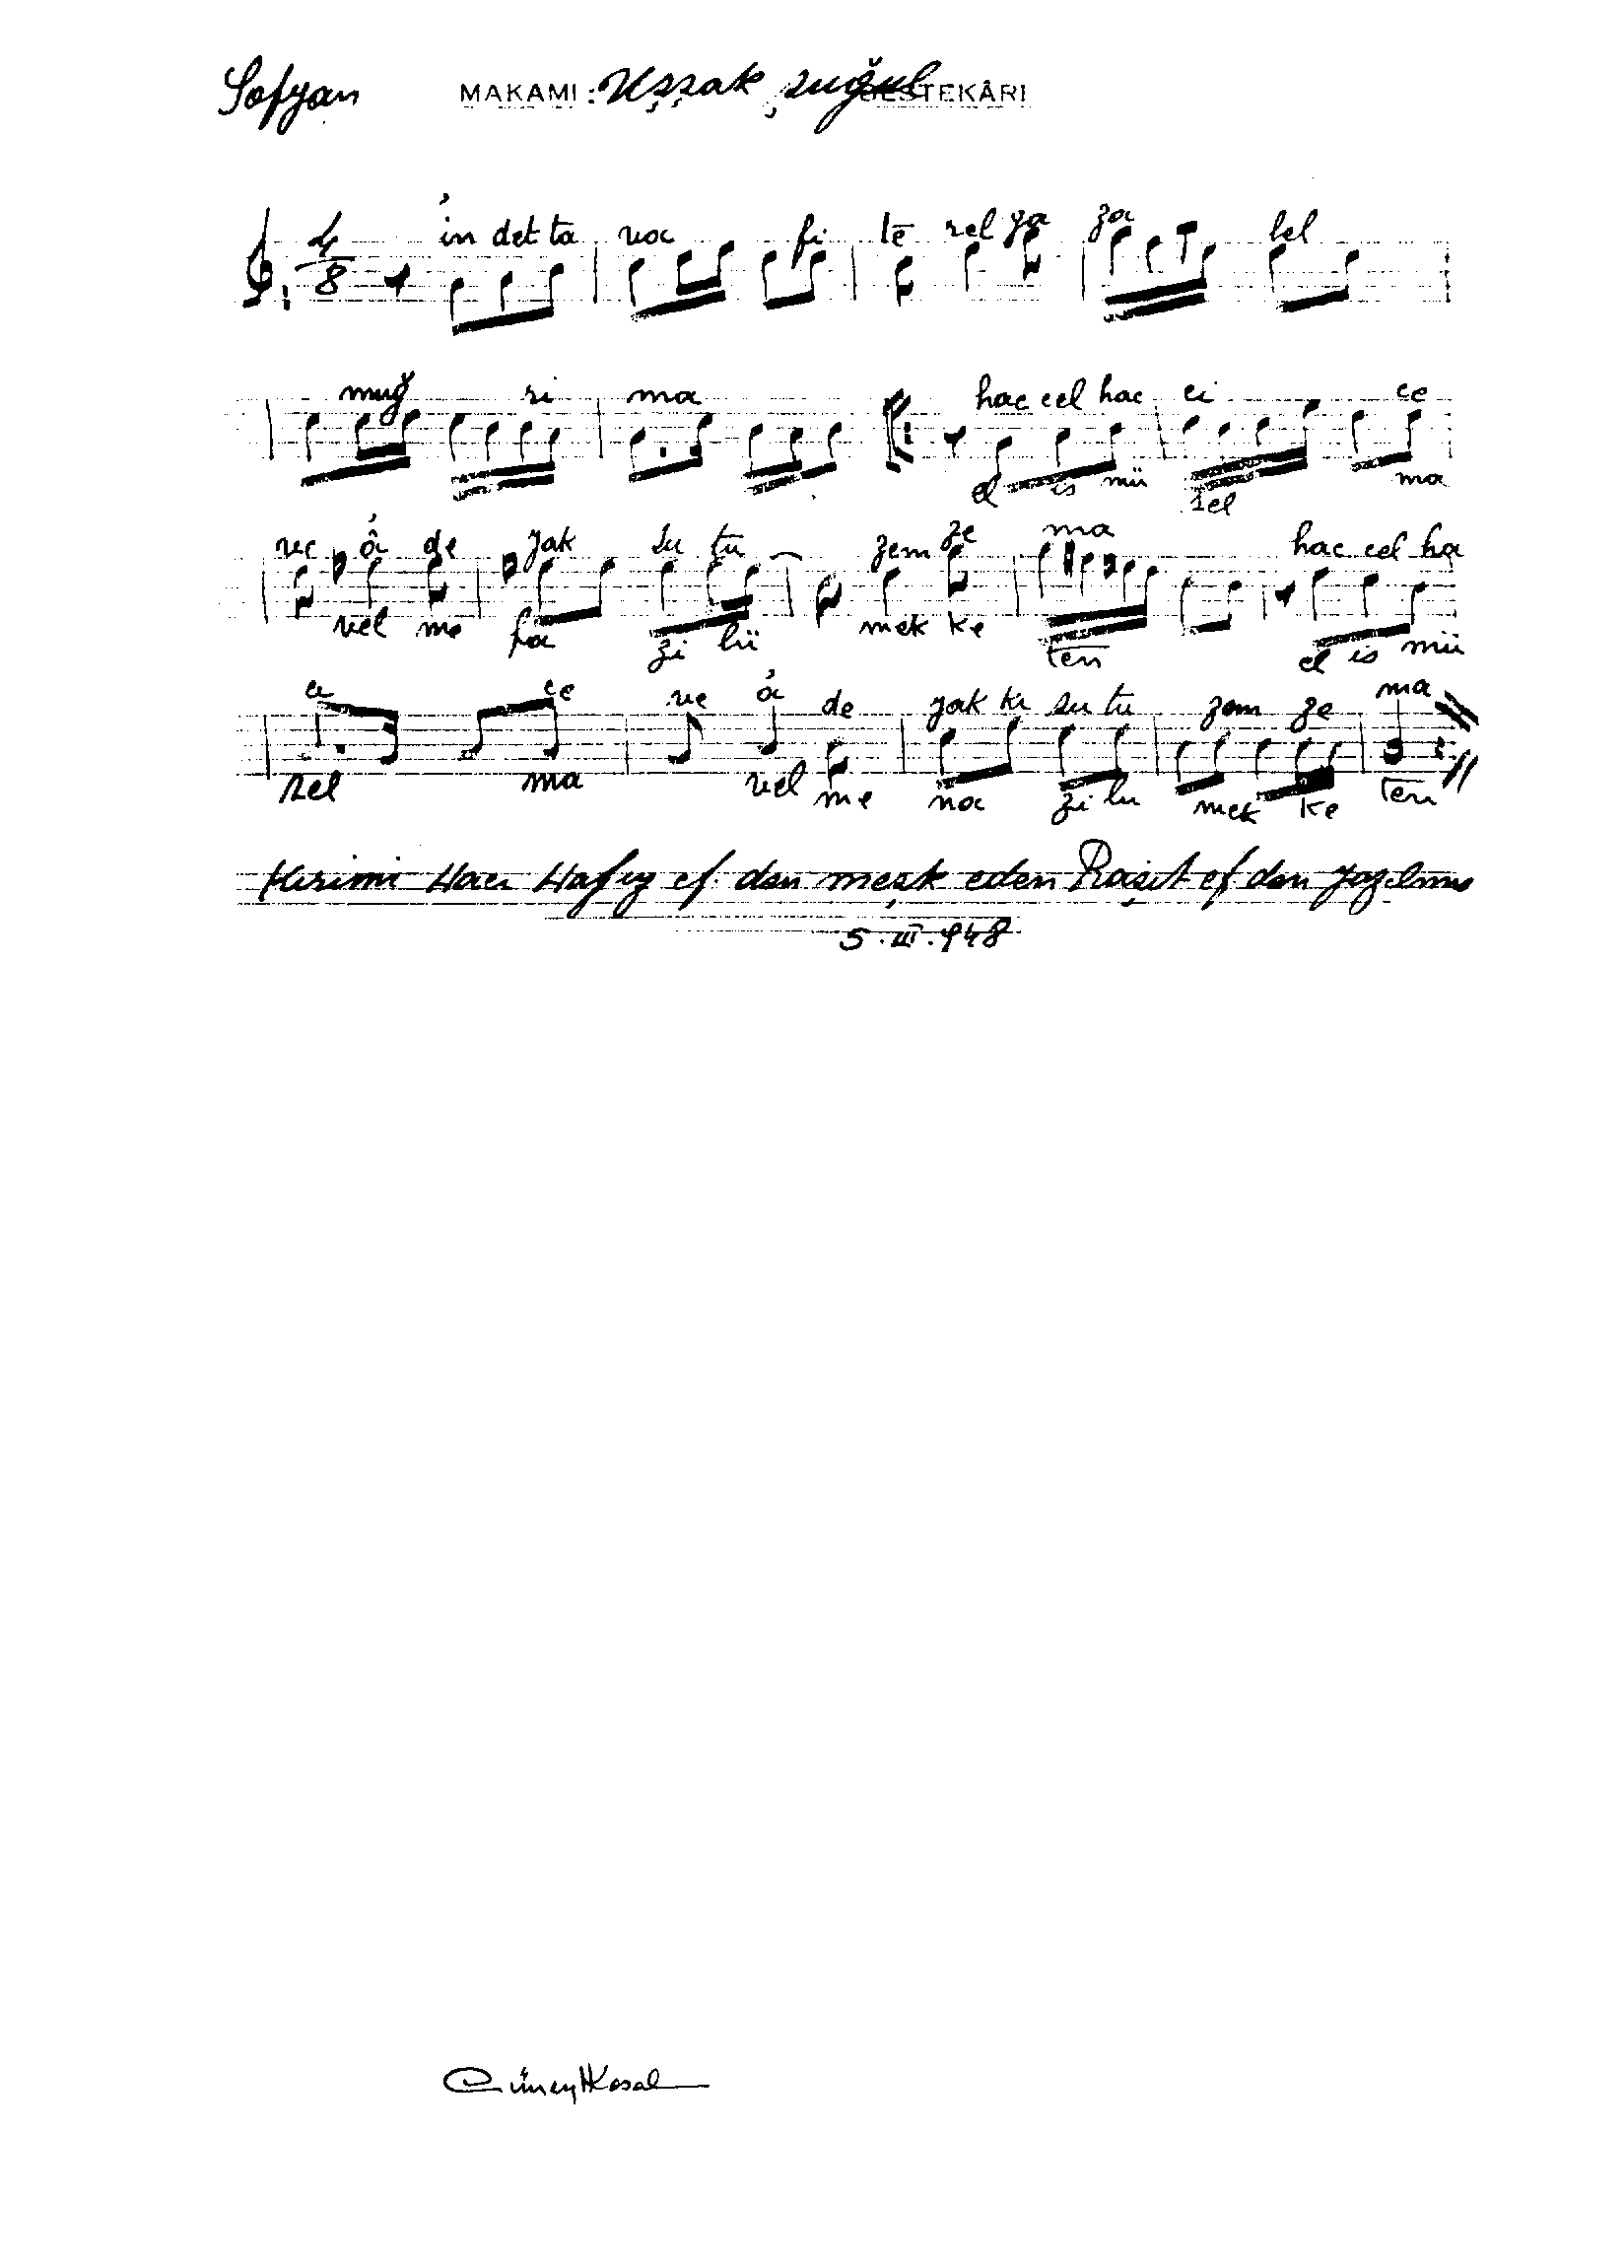 Sofyan MAKAMI : Uşşak şuğul BESTEKÂRI
4 8 in det ta vac fi te rel ga za lel
muğ ri ma hac cel hac ci ce
el is mü rel ma
ve â de yak su tu zem ze ma hac cel ha
vel me fa zi lü mek ke ten el is mü
ci ce ve â de yak kı su tu zem ze ma
rel ma vel me na zi lu mek ke ten
Kırimi Hacı Hafız ef. den meşk eden Raşit ef den yazılmış
5.III.948
Cüneyt Kosal